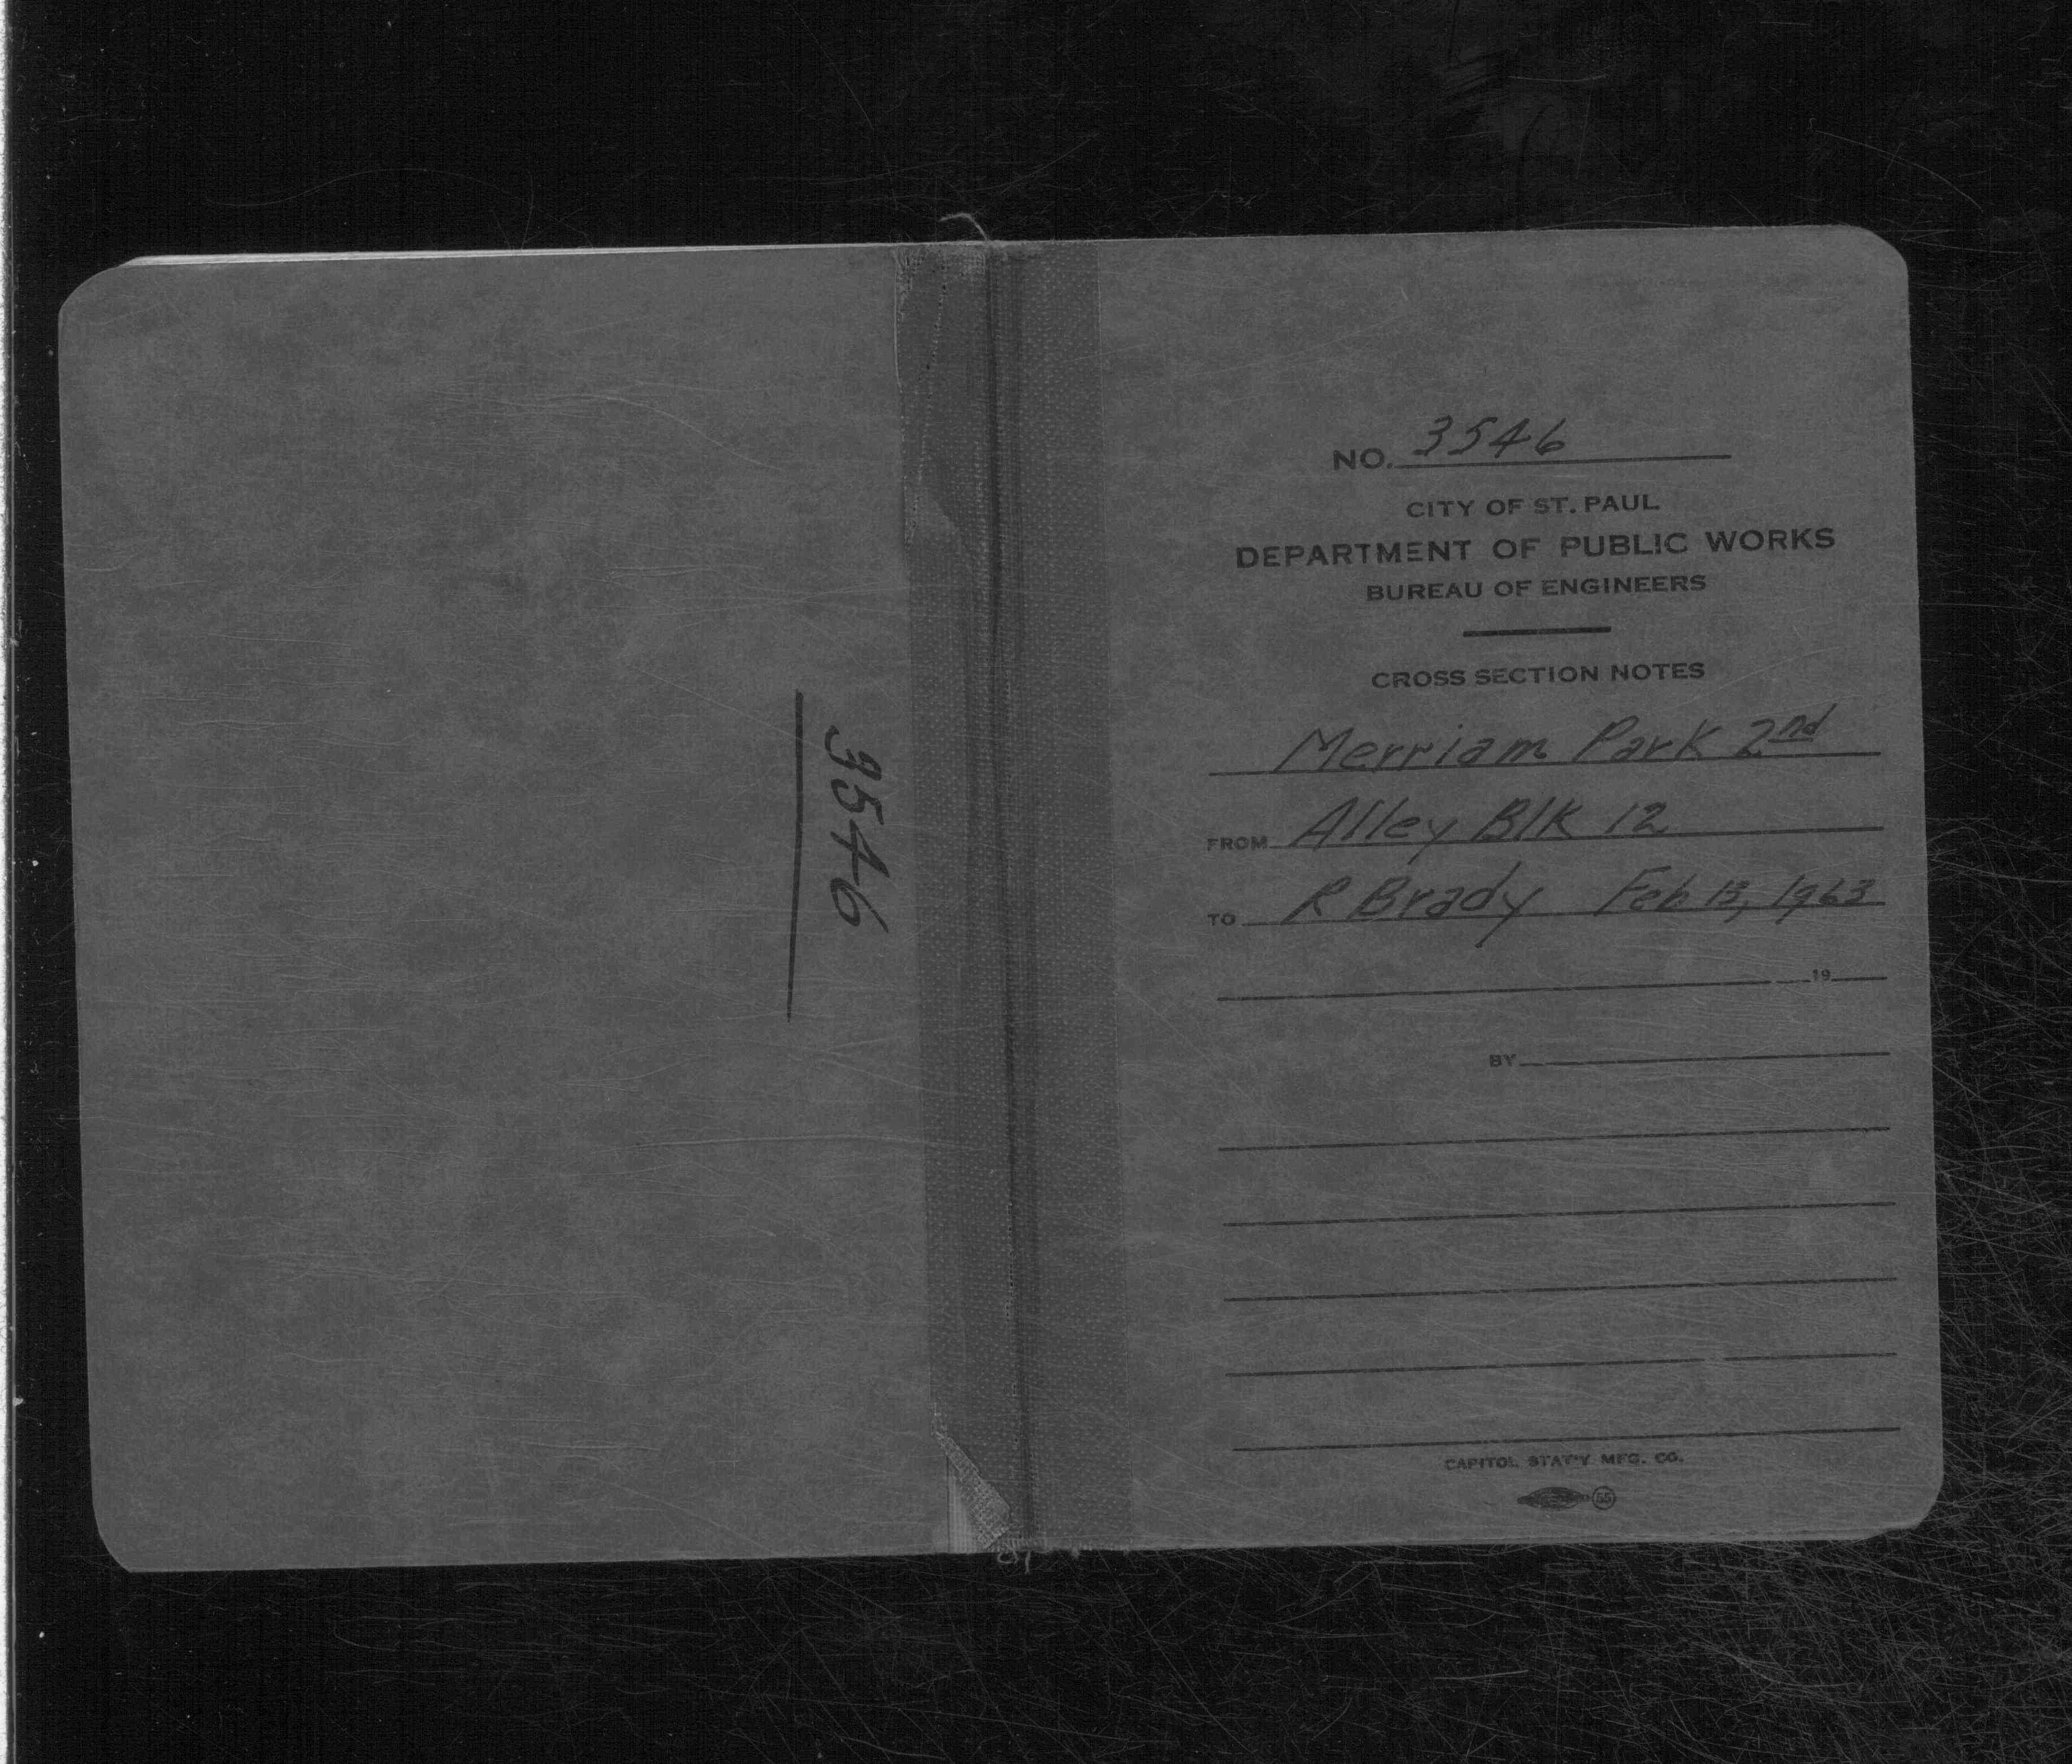 3546
NO. 3546
CITY OF ST. PAUL
DEPARTMENT OF PUBLIC WORKS
BUREAU OF ENGINEERS
CROSS SECTION NOTES
Merriam Park 2nd
FROM Alley Blk 12
TO R Brady Feb 13, 1963
19
BY
CAPITOL STAT'Y MFG. CO.
55